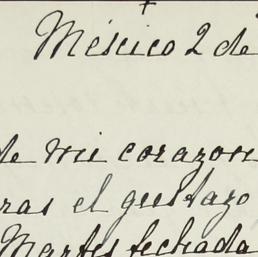 México 2 de
de mi corazon
ras el gustazo
Martes fechada